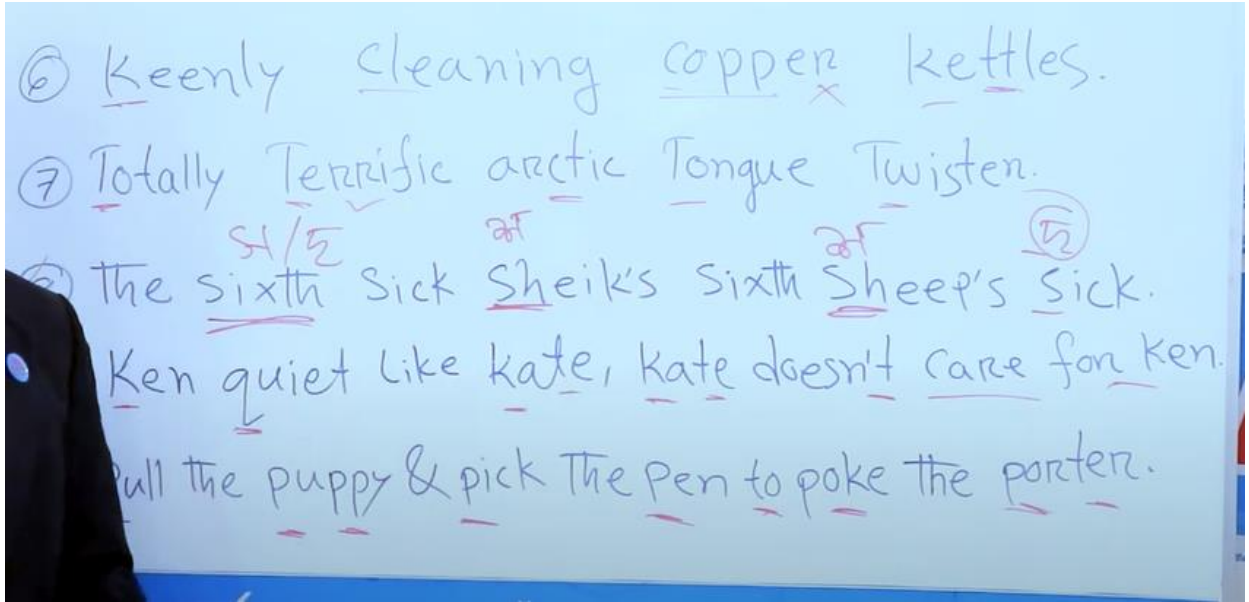 ⑥ Keenly cleaning copper kettles.
⑦ Totally Terrific arctic Tongue Twister.
স/ছ শ শ ছ
The sixth sick Sheik's sixth Sheep's sick.
Ken quiet like kate, kate doesn't care for Ken.
Pull the puppy & pick The pen to poke the porter.